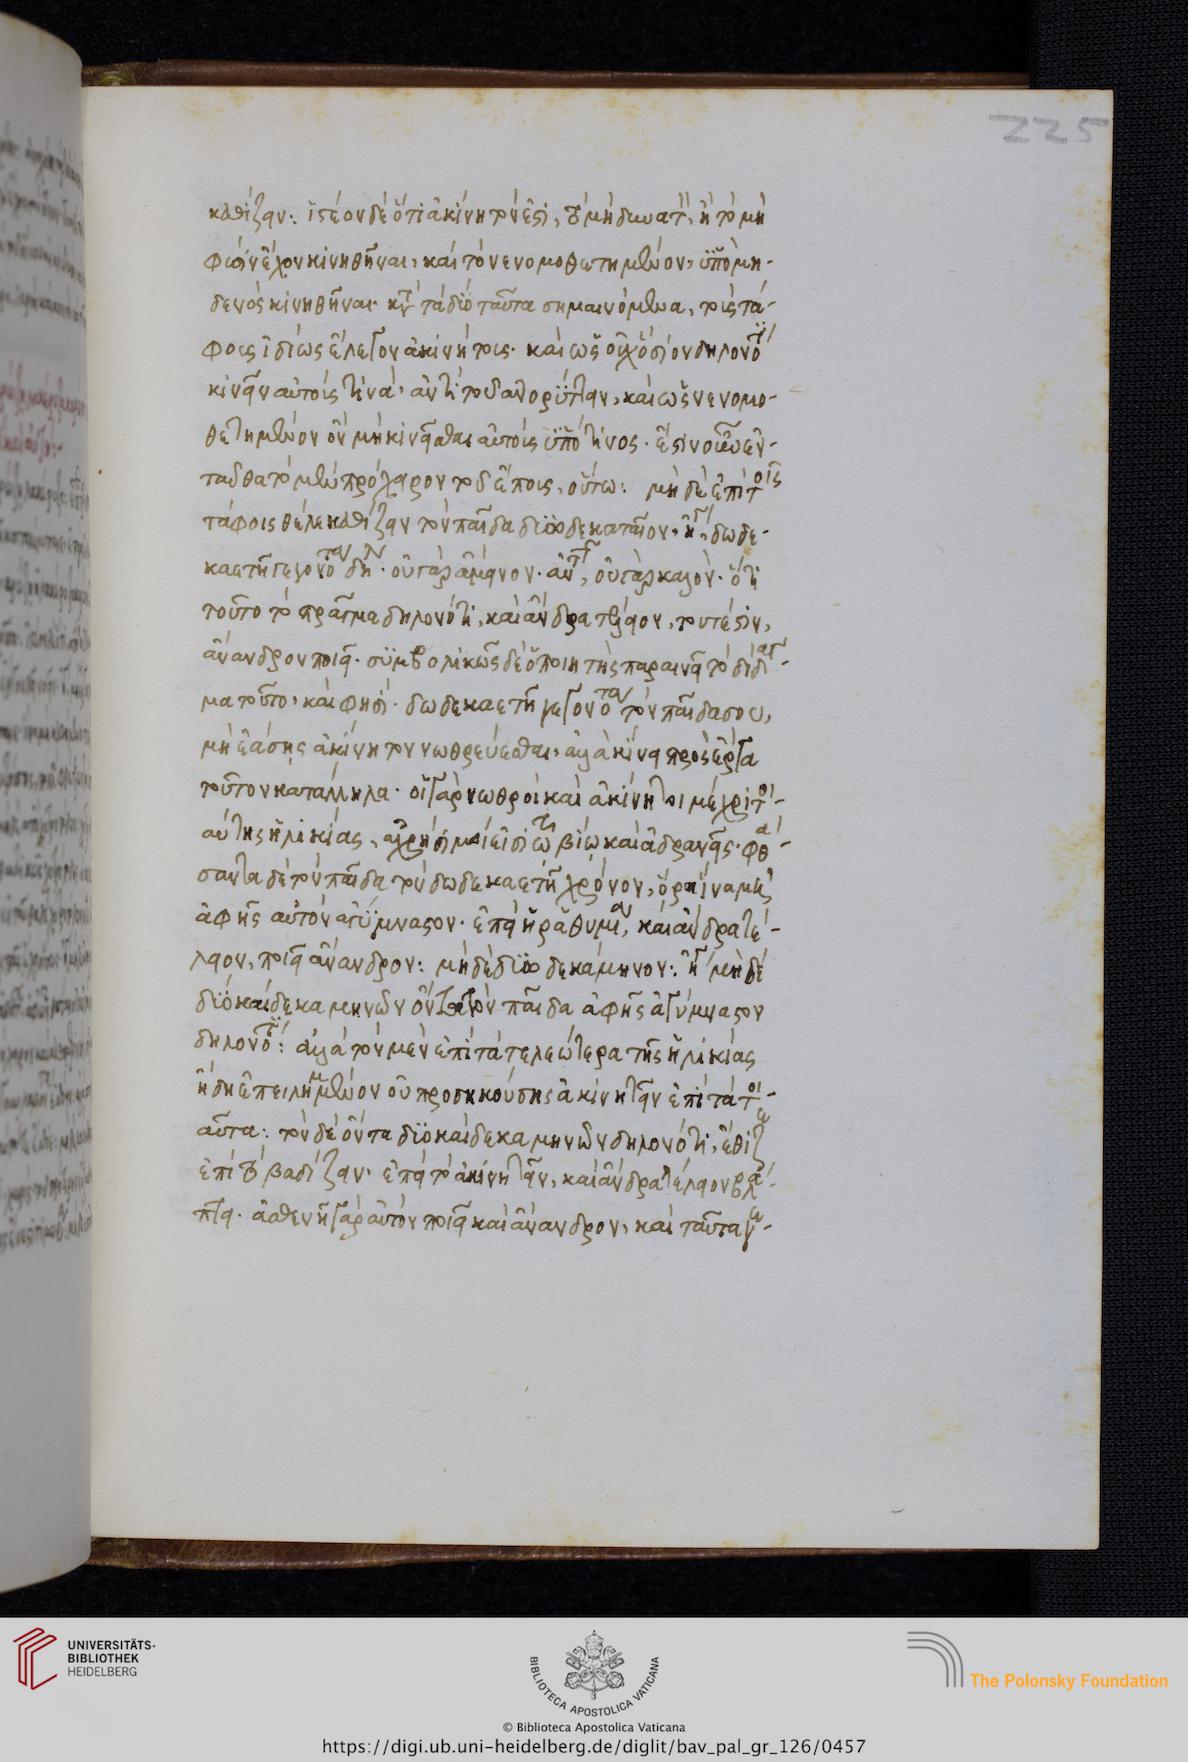 225
καθίζειν: ἰστέον δὲ ὅτι ἀκίνητόν ἐστι, τὸ μὴ δυνατ, ἢ τὸ μὴ
φύσιν ἔχον κινηθῆναι, καὶ τὸ νενομοθετημένον, ὑπὸ μη-
δενὸς κινηθῆναι. κτ τὰ δύο ταῦτα σημαινόμενα, τοὺς τά-
φους ἰδίως ἔλεγον ἀκινήτοις. καὶ ὡς οὐχ ὅσιον δηλονότι
κινεῖν αὐτοὺς τινὰ, ἀντὶ τοῦ ἀνορύττειν, καὶ ὡς νενομο-
θετημένον ὂν μὴ κινεῖσθαι αὐτοὺς ὑπό τινος. ἔστιν οὖν ἐν-
ταῦθα τὸ μὲν πρόχειρον τοῦ ἔπους, οὕτω: μὴ δὲ ἐπὶ τοῖς
τάφοις θέλε καθίζειν τὸν παῖδα δυοδεκαταῖον, ἤγ, δωδε-
καετῆ γεγονότα δὴ. οὐ γὰρ ἄμεινον. ἀντ, οὐ γὰρ καλὸν. ὅτι
τοῦτο τὸ πρᾶγμα δηλονότι, καὶ ἄνδρα τέλειον, τουτέστιν,
ἄνανδρον ποιεῖ. συμβολικῶς δὲ ὁ ποιητὴς παραινεῖ τὸ διδαγ-
μα τοῦτο, καὶ φησὶ. δωδεκαετῆ γεγονότα τὸν παῖδα σου,
μὴ ἐάσῃς ἀκίνητον νωθρεύεσθαι, ἀλλὰ κίνει πρὸς ἔργα
τοῦτον κατάλληλα. οἱ γὰρ νωθροὶ καὶ ἀκίνητοι μέχρι τοι-
αύτης ἡλικίας, ἀχρήσιμοί εἰσι τῷ βίῳ καὶ ἀδρανεῖς. φθά-
σαντα δὲ τὸν παῖδα τὸν δωδεκαετῆ χρόνον, ὅρα ἵνα μὴ
ἀφῇς αὐτὸν ἀγύμναστον. ἐπεὶ ἡ ῥαθυμία, καὶ ἄνδρα τέ-
λειον, ποιεῖ ἄνανδρον: μὴ δὲ δυοδεκάμηνον: ἤγ μὴ δὲ
δυοκαίδεκα μηνῶν ὄντα τὸν παῖδα ἀφῇς ἀγύμναστον
δηλονότι: ἀλλὰ τὸν μὲν ἐπὶ τὰ τελεώτερα τῆς ἡλικίας
ἤδη ἐπειλημμένον οὐ προσηκούσης ἀκινητεῖν ἐπὶ τὰ τοι-
αῦτα: τὸν δὲ ὄντα δυοκαίδεκα μηνῶν δηλονότι, ἔθιζε
ἐπὶ τὸ βαδίζειν. ἐπεὶ τὸ ἀκινητεῖν, καὶ ἄνδρα τέλειον βλά-
πτει. ἀσθενῆ γὰρ αὐτὸν ποιεῖ καὶ ἄνανδρον, καὶ ταῦτα γε-
UNIVERSITÄTS-
BIBLIOTHEK
HEIDELBERG
BIBLIOTECA APOSTOLICA VATICANA
The Polonsky Foundation
© Biblioteca Apostolica Vaticana
https://digi.ub.uni-heidelberg.de/diglit/bav_pal_gr_126/0457